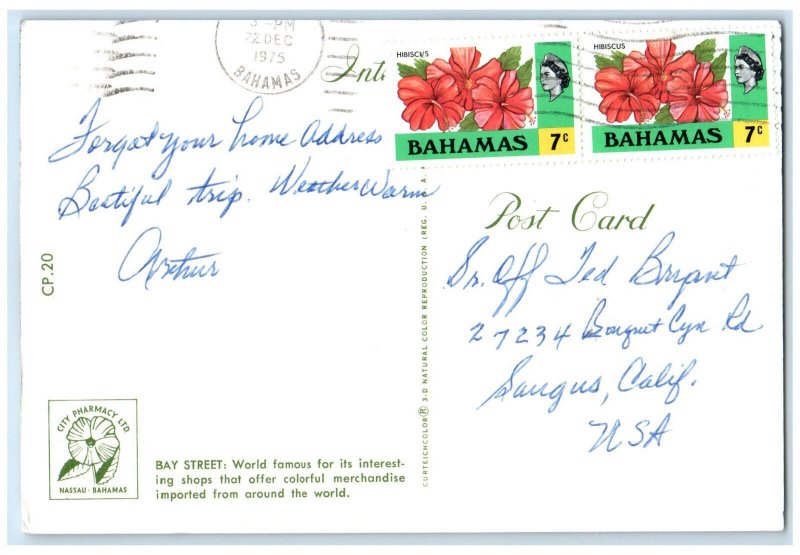 3 - PM
22 DEC
1975
BAHAMAS
HIBISCUS
BAHAMAS 7c
HIBISCUS
BAHAMAS 7c
Forgot your home Address
Beatiful trip. Weather Warm
Arthur
CP.20
CITY PHARMACY LTD
NASSAU - BAHAMAS
BAY STREET: World famous for its interest-
ing shops that offer colorful merchandise
imported from around the world.
CURTEICHCOLOR® 3-D NATURAL COLOR REPRODUCTION (REG. U.S.A.
Post Card
Sr. Off Ted Bryant
27234 Bouquet Cyn Rd
Saugus, Calif.
USA